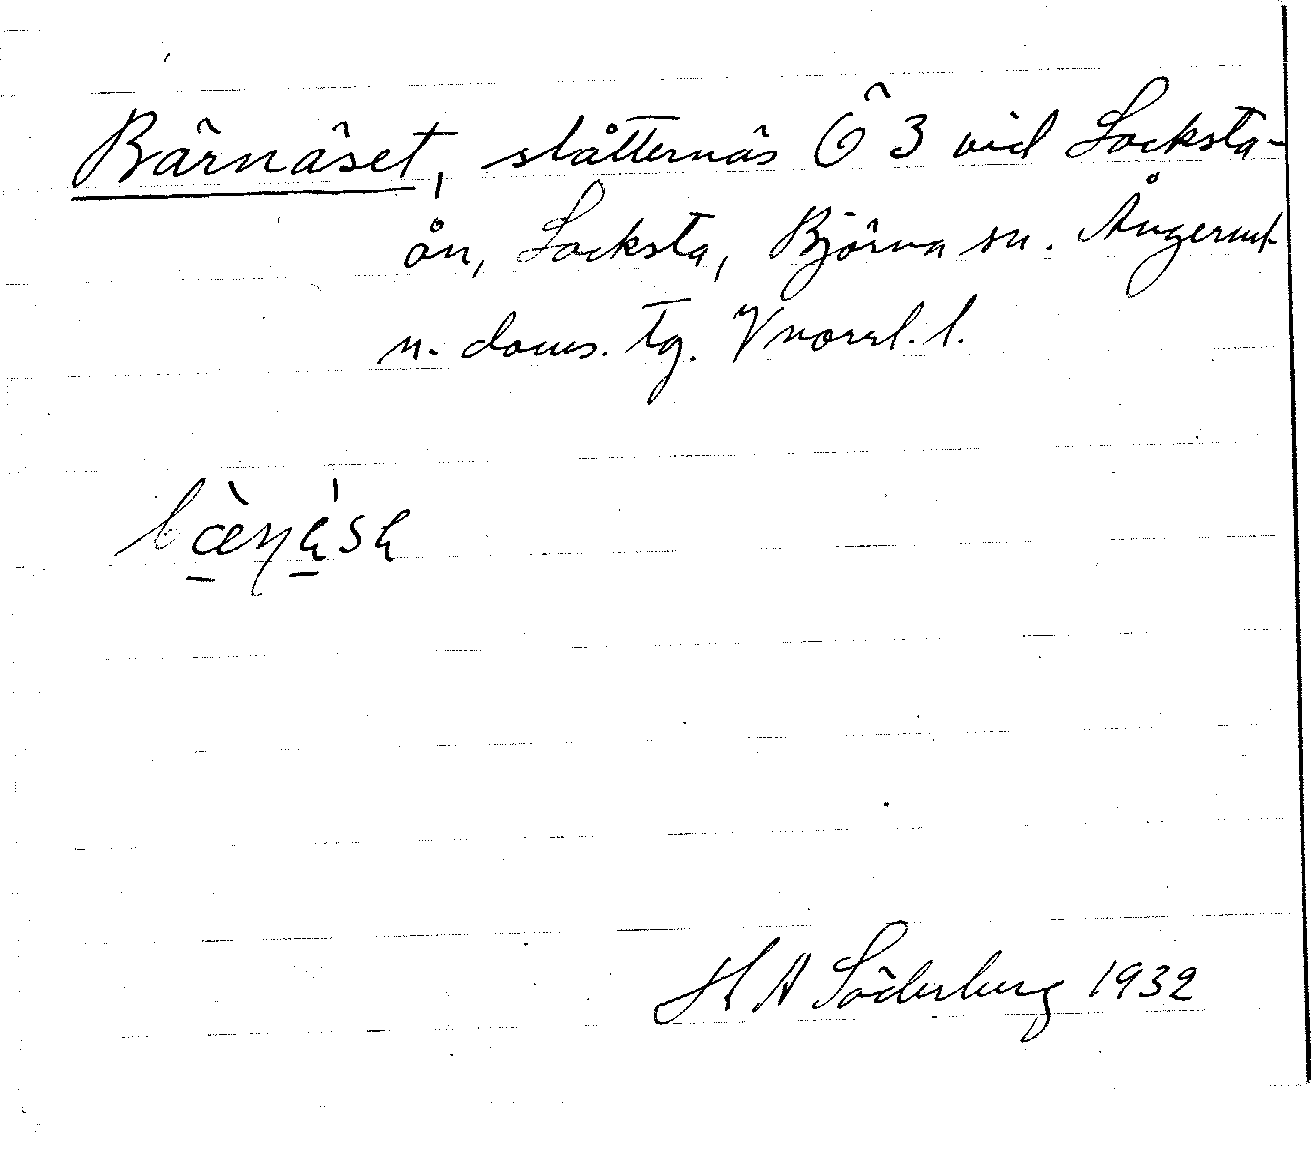 Bärnäset, slåtternäs Ö 3 vid Locksta-
ån, Locksta, Björna sn. Ångerml.
n. doms. tg. Vnorrl. l.
H A Söderberg 1932